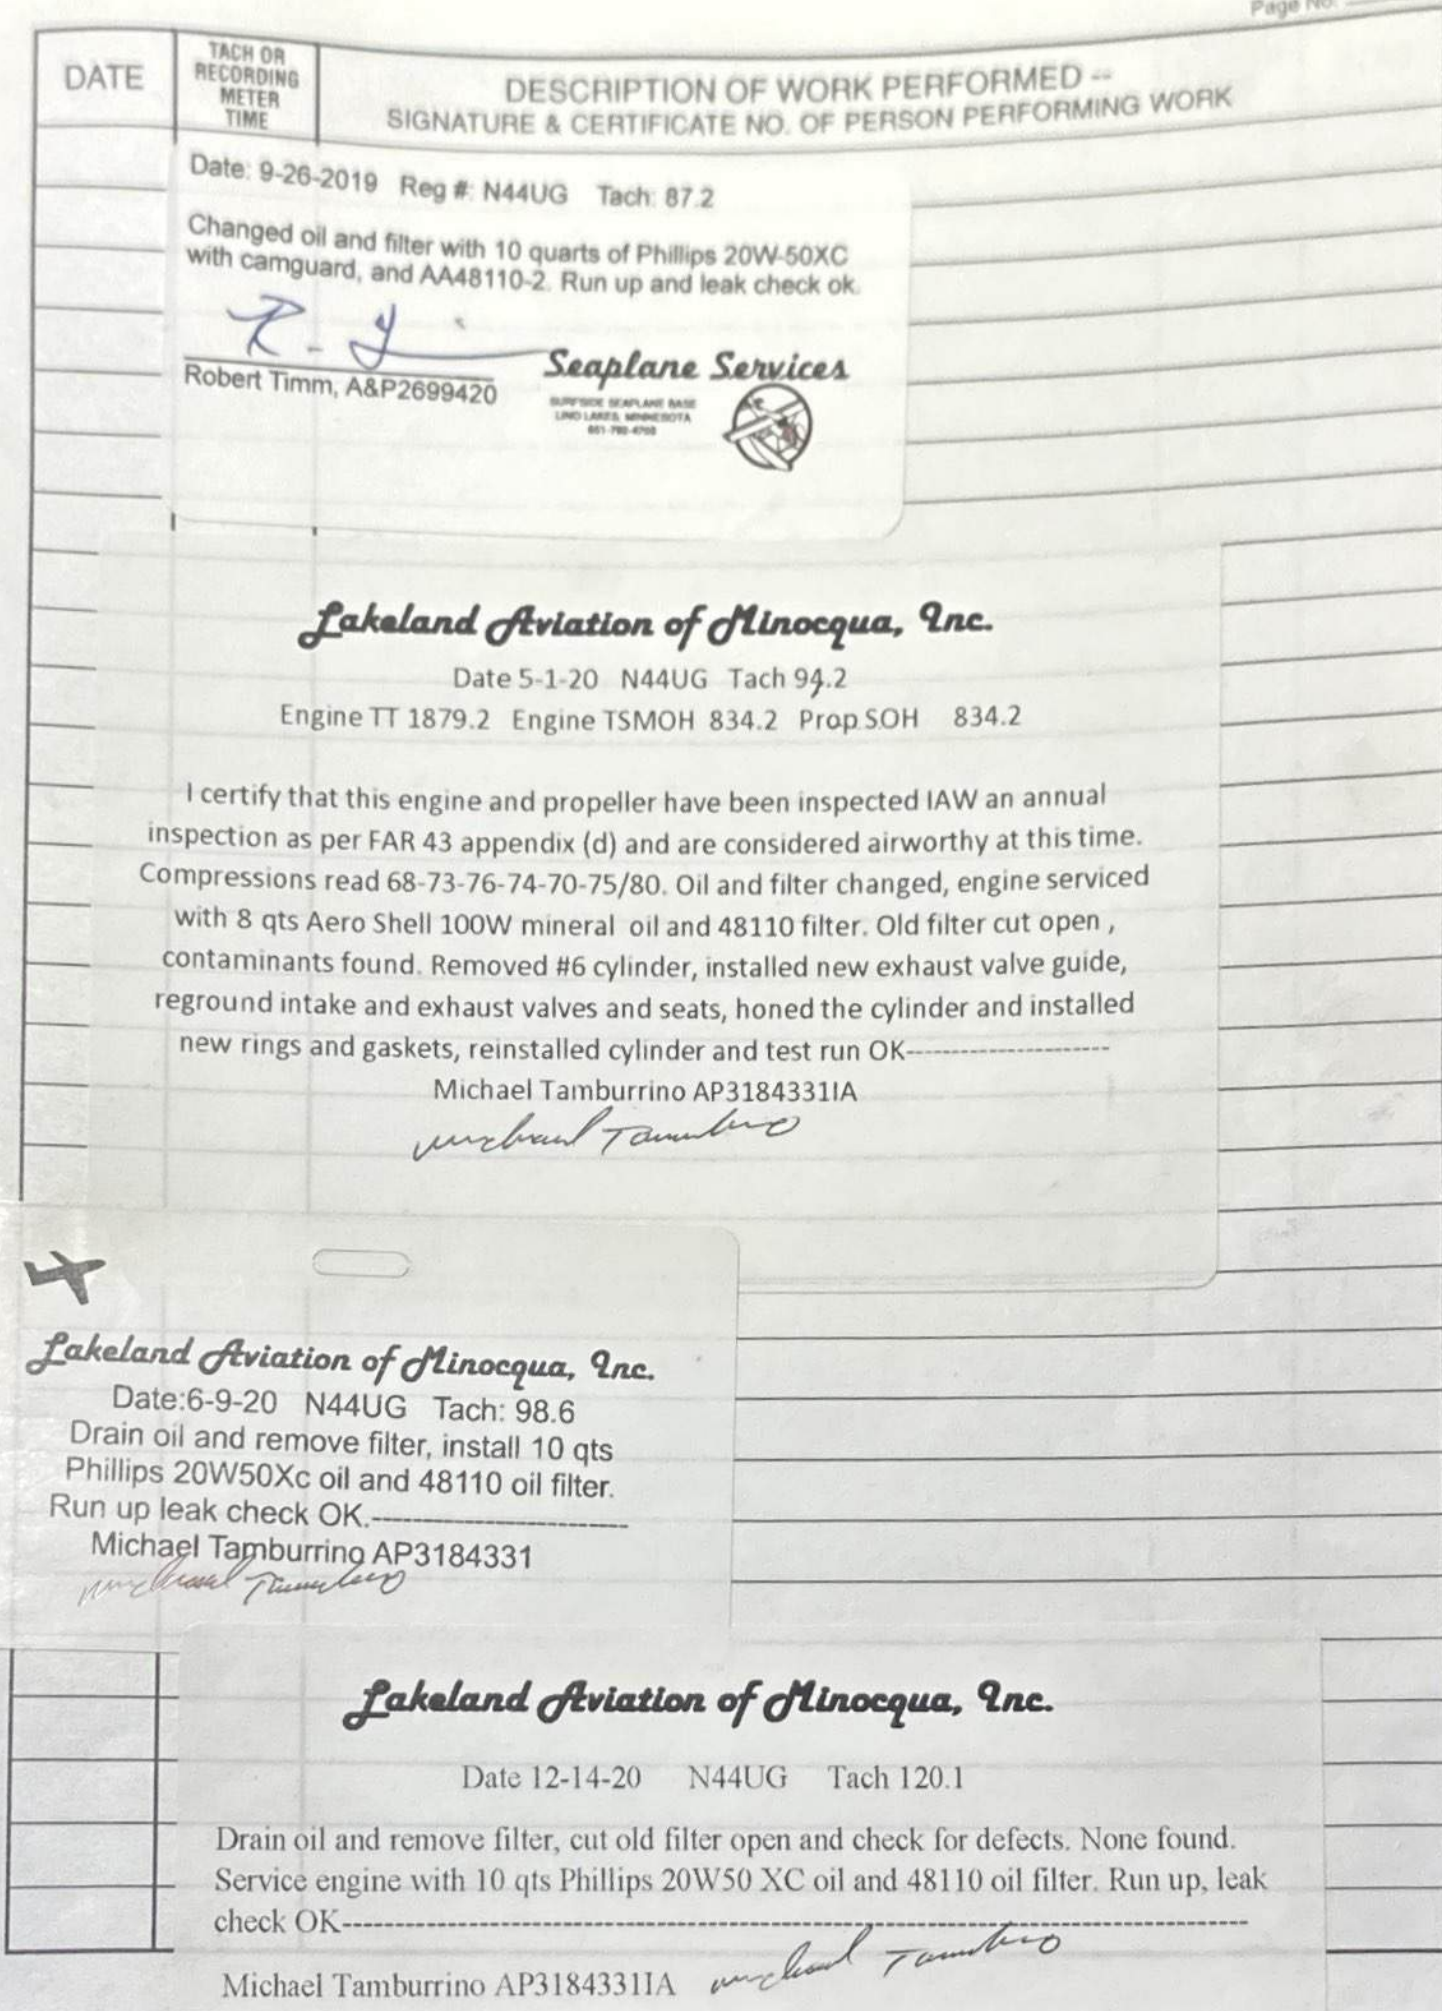 Page No.
DATE
TACH OR
RECORDING
METER
TIME
DESCRIPTION OF WORK PERFORMED --
SIGNATURE & CERTIFICATE NO. OF PERSON PERFORMING WORK
Date: 9-26-2019 Reg #: N44UG Tach: 87.2
Changed oil and filter with 10 quarts of Phillips 20W-50XC
with camguard, and AA48110-2. Run up and leak check ok.
Robert Timm, A&P2699420
Seaplane Services
SURFSIDE SEAPLANE BASE
LINO LAKES, MINNESOTA
Lakeland Aviation of Minocqua, Inc.
Date 5-1-20 N44UG Tach 94.2
Engine TT 1879.2 Engine TSMOH 834.2 Prop SOH 834.2
I certify that this engine and propeller have been inspected IAW an annual
inspection as per FAR 43 appendix (d) and are considered airworthy at this time.
Compressions read 68-73-76-74-70-75/80. Oil and filter changed, engine serviced
with 8 qts Aero Shell 100W mineral oil and 48110 filter. Old filter cut open ,
contaminants found. Removed #6 cylinder, installed new exhaust valve guide,
reground intake and exhaust valves and seats, honed the cylinder and installed
new rings and gaskets, reinstalled cylinder and test run OK----------------------
Michael Tamburrino AP3184331IA
Michael Tamburrino
Lakeland Aviation of Minocqua, Inc.
Date:6-9-20 N44UG Tach: 98.6
Drain oil and remove filter, install 10 qts
Phillips 20W50Xc oil and 48110 oil filter.
Run up leak check OK.--------------------------
Michael Tamburrino AP3184331
Michael Tamburrino
Lakeland Aviation of Minocqua, Inc.
Date 12-14-20 N44UG Tach 120.1
Drain oil and remove filter, cut old filter open and check for defects. None found.
Service engine with 10 qts Phillips 20W50 XC oil and 48110 oil filter. Run up, leak
check OK------------------------------------------------------------------------------------
Michael Tamburrino AP3184331IA Michael Tamburrino